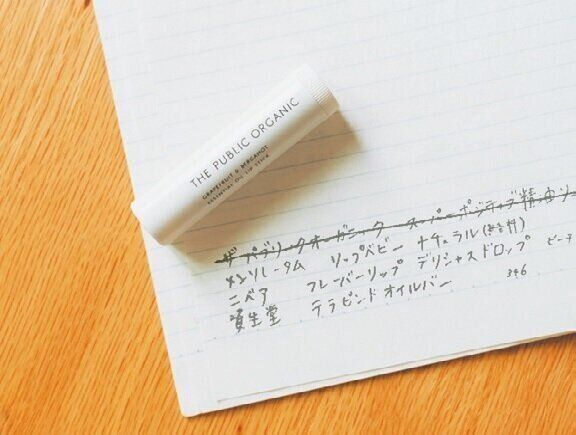 THE PUBLIC ORGANIC
GRAPEFRUIT & BERGAMOT
ESSENTIAL OIL LIP STICK
ザ パブリックオーガニック スーパーポジティブ精油リ
メンソレータム リップベビー ナチュラル(無香料)
ニベア フレーバーリップ デリシャスドロップ ピーチ
資生堂 テラピンド オイルバー 346